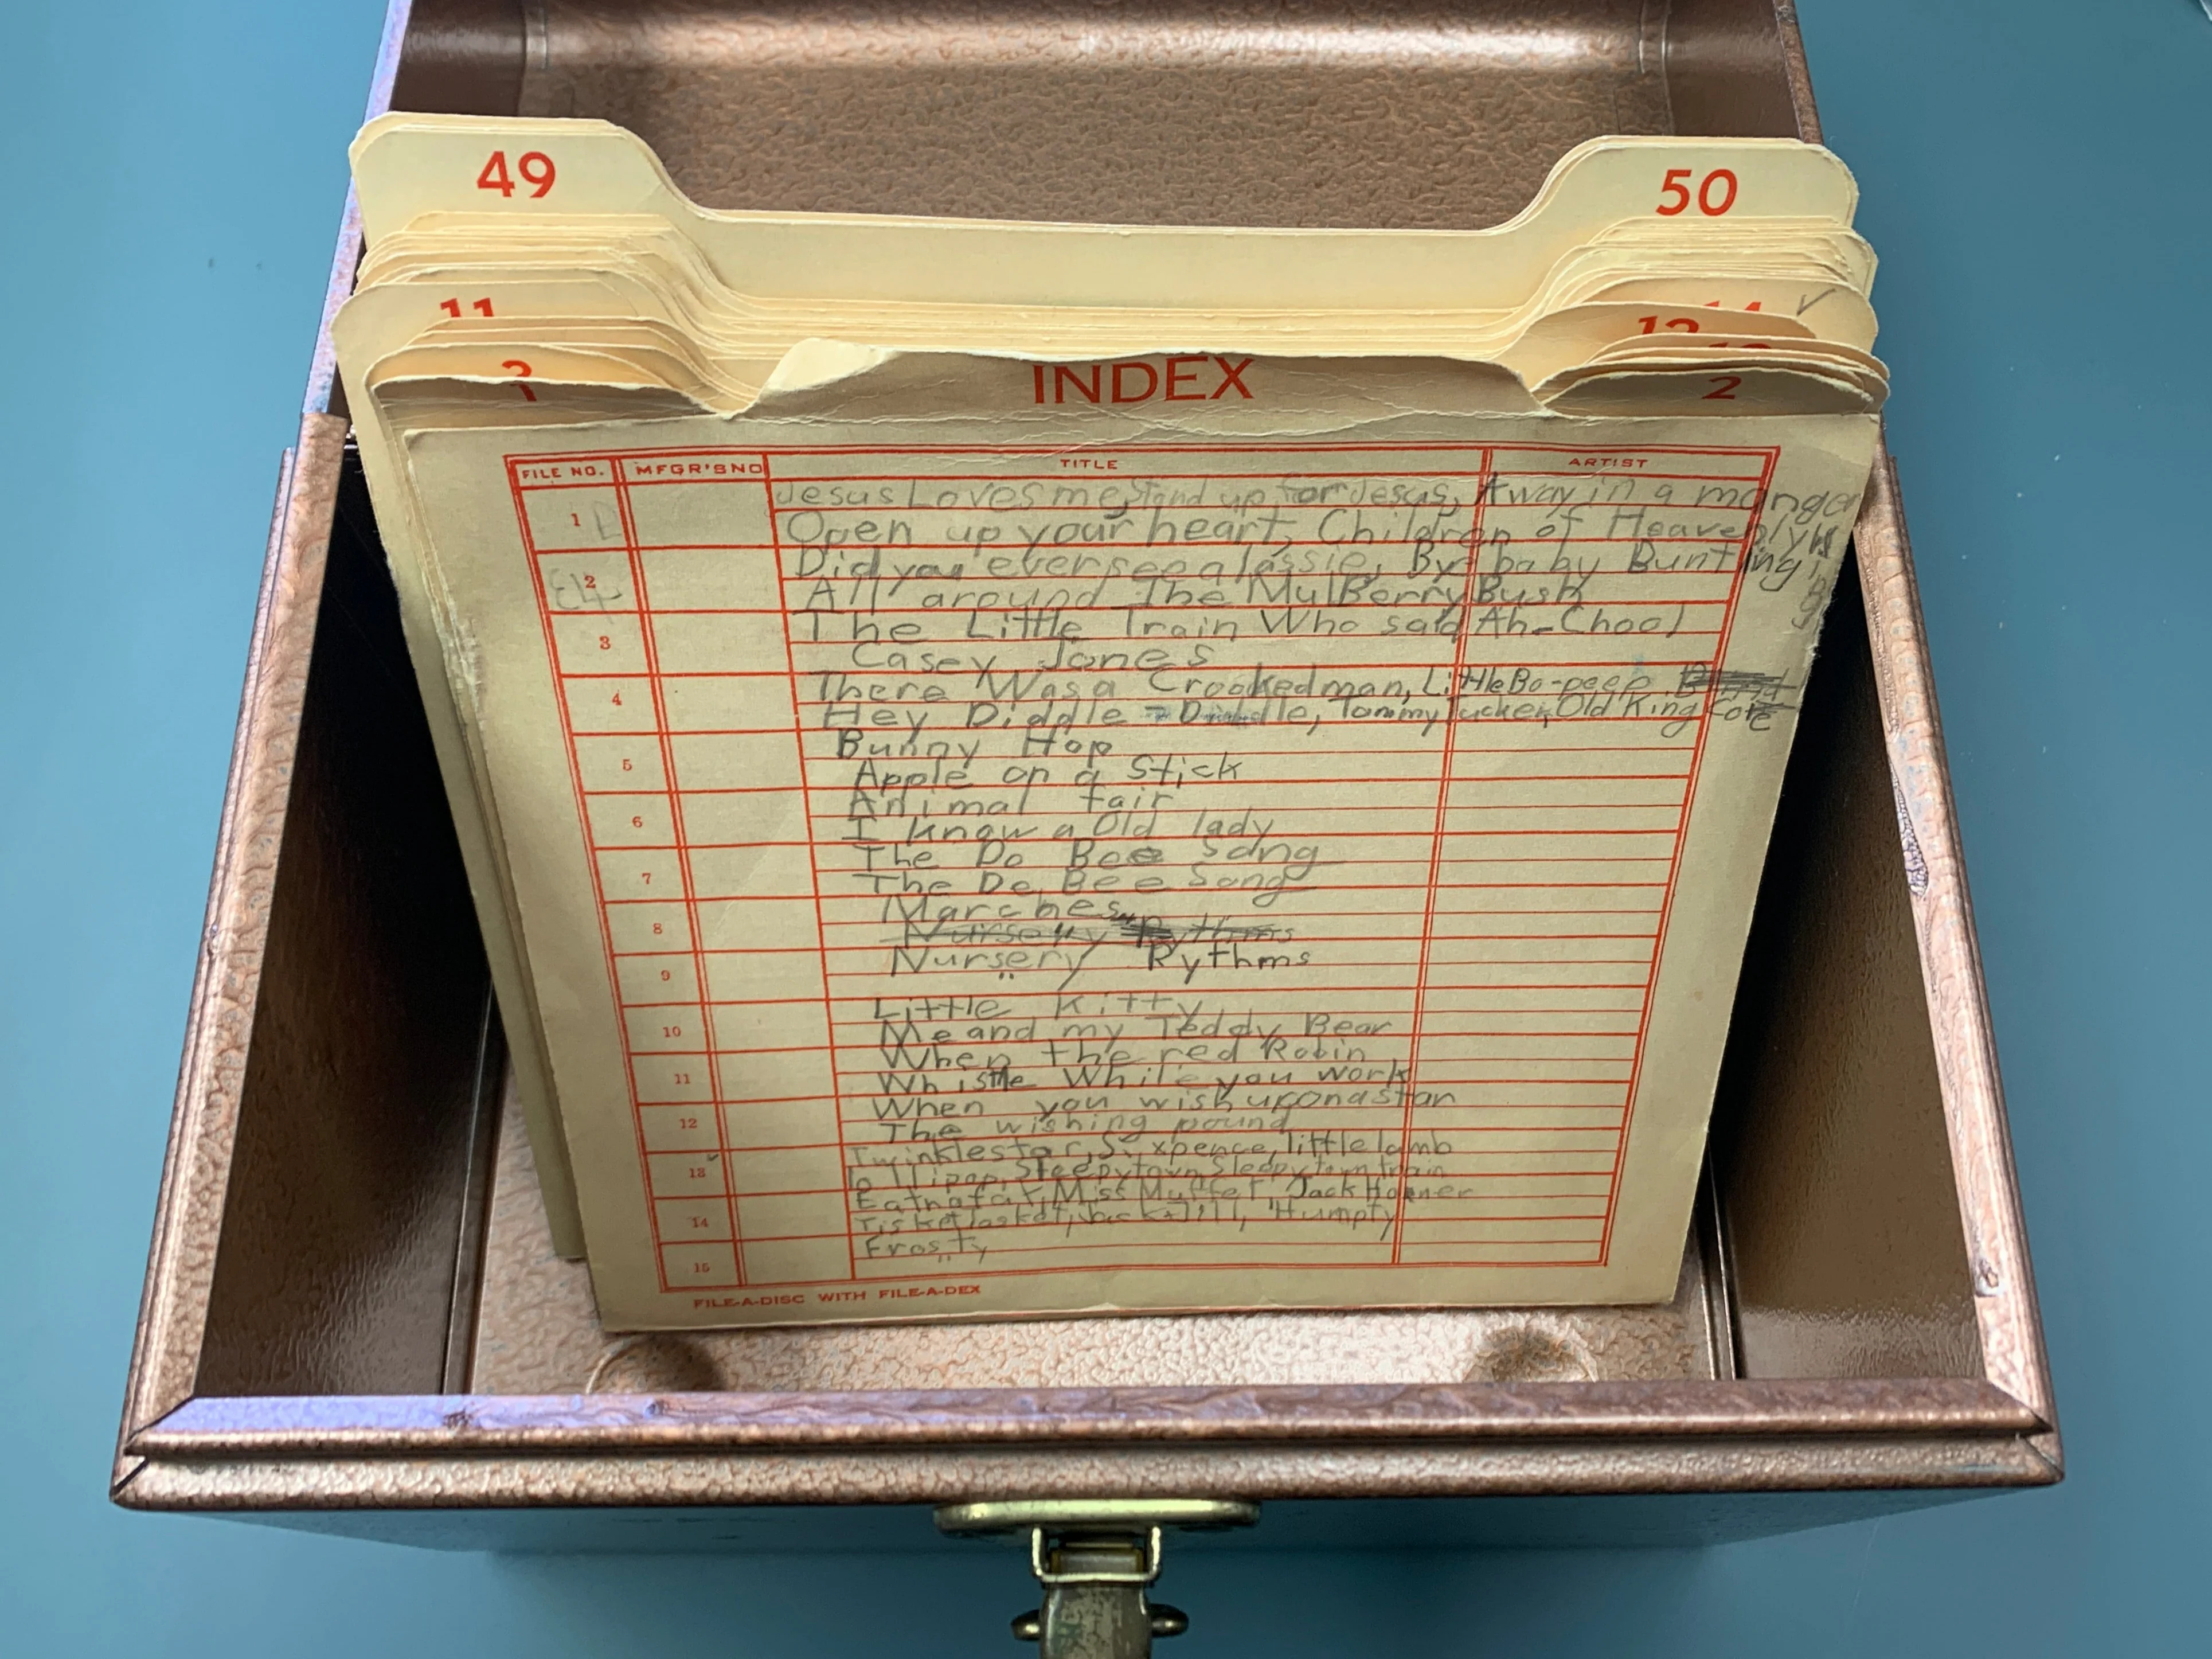 49 50
11
12
1 2
INDEX
FILE NO. MFGR'S NO TITLE ARTIST
Jesus Loves me, Stand up for Jesus, Away in a manger
1 Open up your heart, Children of Heavenly
2 Did you ever see a lassie, By baby Bunting
All around The MulBerry Bush
3 The Little Train Who said Ah-Choo!
Casey Jones
4 There Was a Crooked man, Little Bo-peep,
Hey Diddle - Diddle, Tommy Tucker, Old King Cole
5 Bunny Hop
Apple on a Stick
6 Animal fair
I know a Old lady
7 The Do Bee Song
The Do Bee Song
8 Marches
Nursery Rythms
9 Nursery Rythms
Little Kitty
10 Me and my Teddy Bear
When the red Robin
11 Whistle While you work
12 When you wish upon a star
The wishing pound
13 Twinkle star, Sixpence, little lamb
lollipop, Sleepytown Sleepytown train
14 Eatnafat, Miss Muffet, Jack Horner
Tisket Tasket, Jack + Jill, Humpty
15 Frosty
FILE-A-DISC WITH FILE-A-DEX